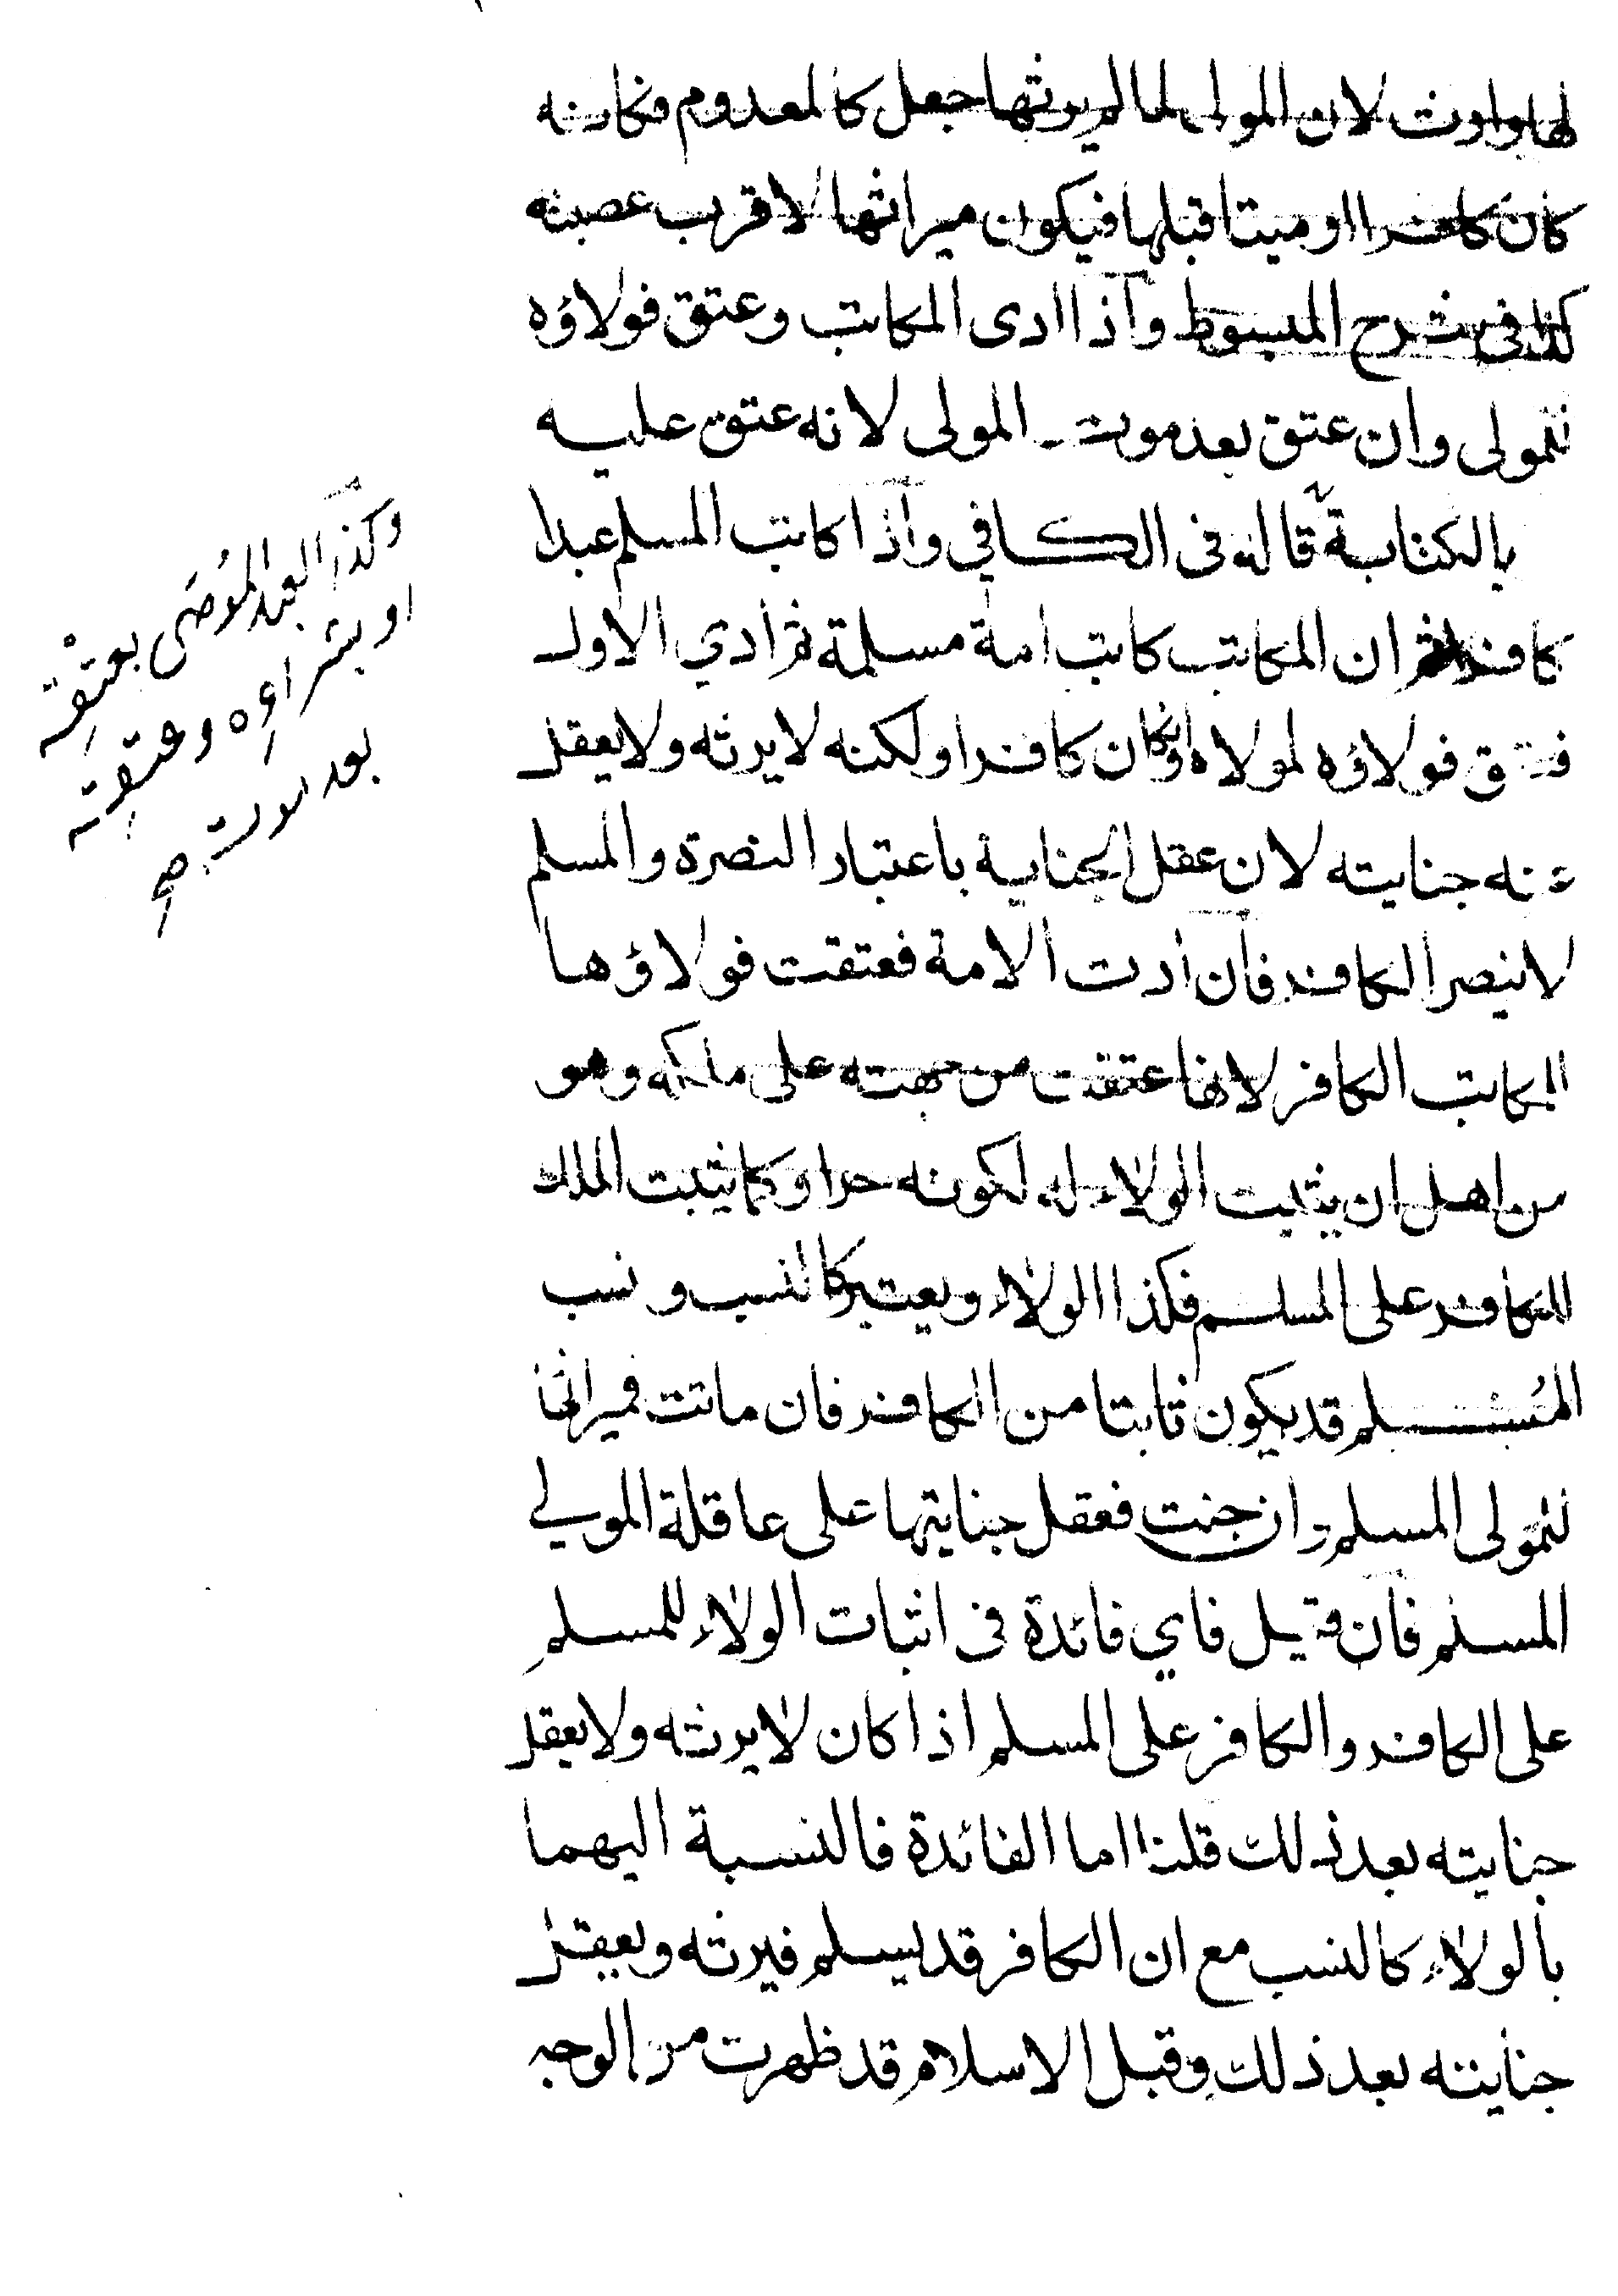 لها وارث لان المولى لما لم يرثها جعل كالمعدوم فكانه
كان كافرا او ميتا قبلها فيكون ميراثها لاقرب عصبته
كذا في شرح المبسوط واذا ادى المكاتب وعتق فولاؤه
للمولى وان عتق بعد موت المولى لانه عتق عليه
بالكتابة قاله في الكافي واذا كاتب المسلم عبدا
كافرا ثم ان المكاتب كاتب امة مسلمة ثم أدي الاول
فعتق فولاؤه لمولاه وان كان كافرا ولكنه لا يرثه ولا يعقل
عنه جنايته لان عقل الجناية باعتبار النصرة والمسلم
لا ينصر الكافر فان أدت الامة فعتقت فولاؤها
للمكاتب الكافر لانها عتقت من جهته على ملكه وهو
من اهل ان يثبت الولاء له لكونه حرا وكما يثبت الملك
للكافر على المسلم فكذا الولاء ويعتبر كالنسب ونسب
المُسلم قد يكون ثابتا من الكافر فان ماتت فميراثها
للمولى المسلم وان جنت فعقل جنايتها على عاقلة المولي
المسلم فان قيل فاي فائدة في اثبات الولاء للمسلم
على الكافر والكافر على المسلم اذا كان لا يرثه ولا يعقل
جنايته بعد ذلك قلنا اما الفائدة فالنسبة اليهما
بالولاء كالنسب مع ان الكافر قد يسلم فيرثه ويعقل
جنايته بعد ذلك وقبل الاسلام قد ظهرت من الوجه
وكذا العبد المُوصَى بعتقِهِ
او بشراؤه وعتقِهِ
بعد موته صح